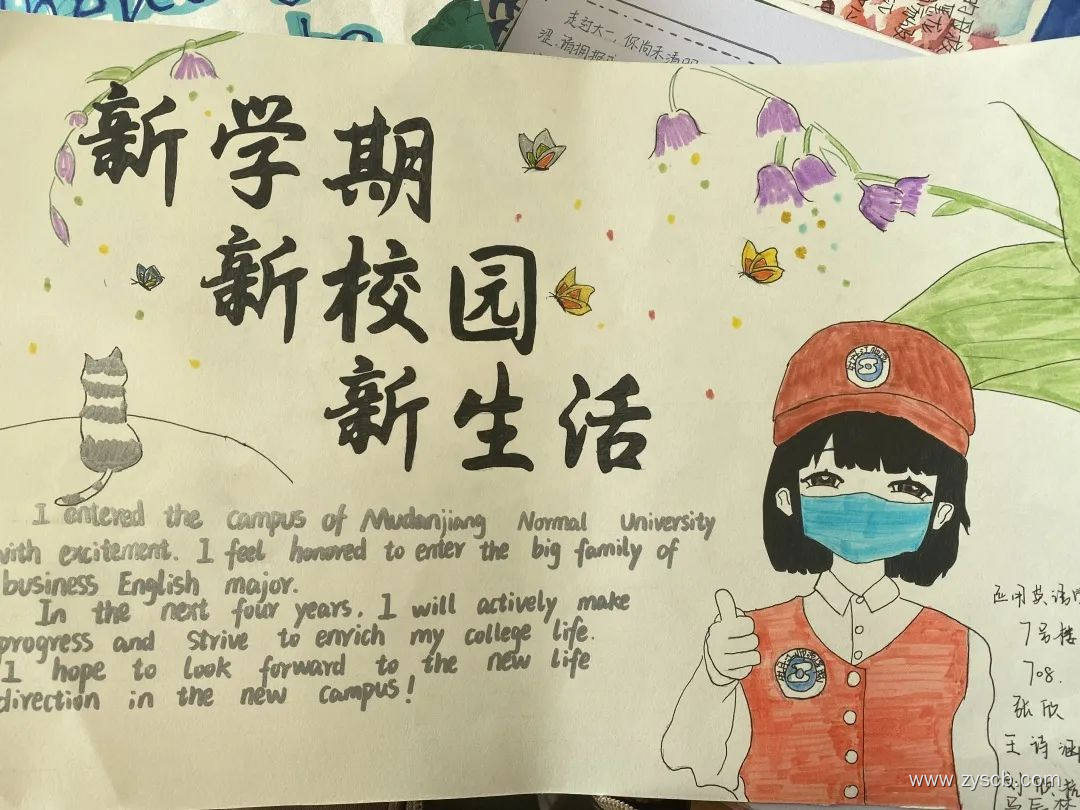 走过大二,你尚未清明
涩,请拥抱
新学期
新校园
新生活
I entered the campus of Mudanjiang Normal University
with excitement. I feel honored to enter the big family of
business English major.
In the next four years. I will actively make
progress and strive to enrich my college life.
I hope to look forward to the new life
direction in the new campus!
应用英语
7号楼
708.
张欣
王诗涵
www.zyscb.com